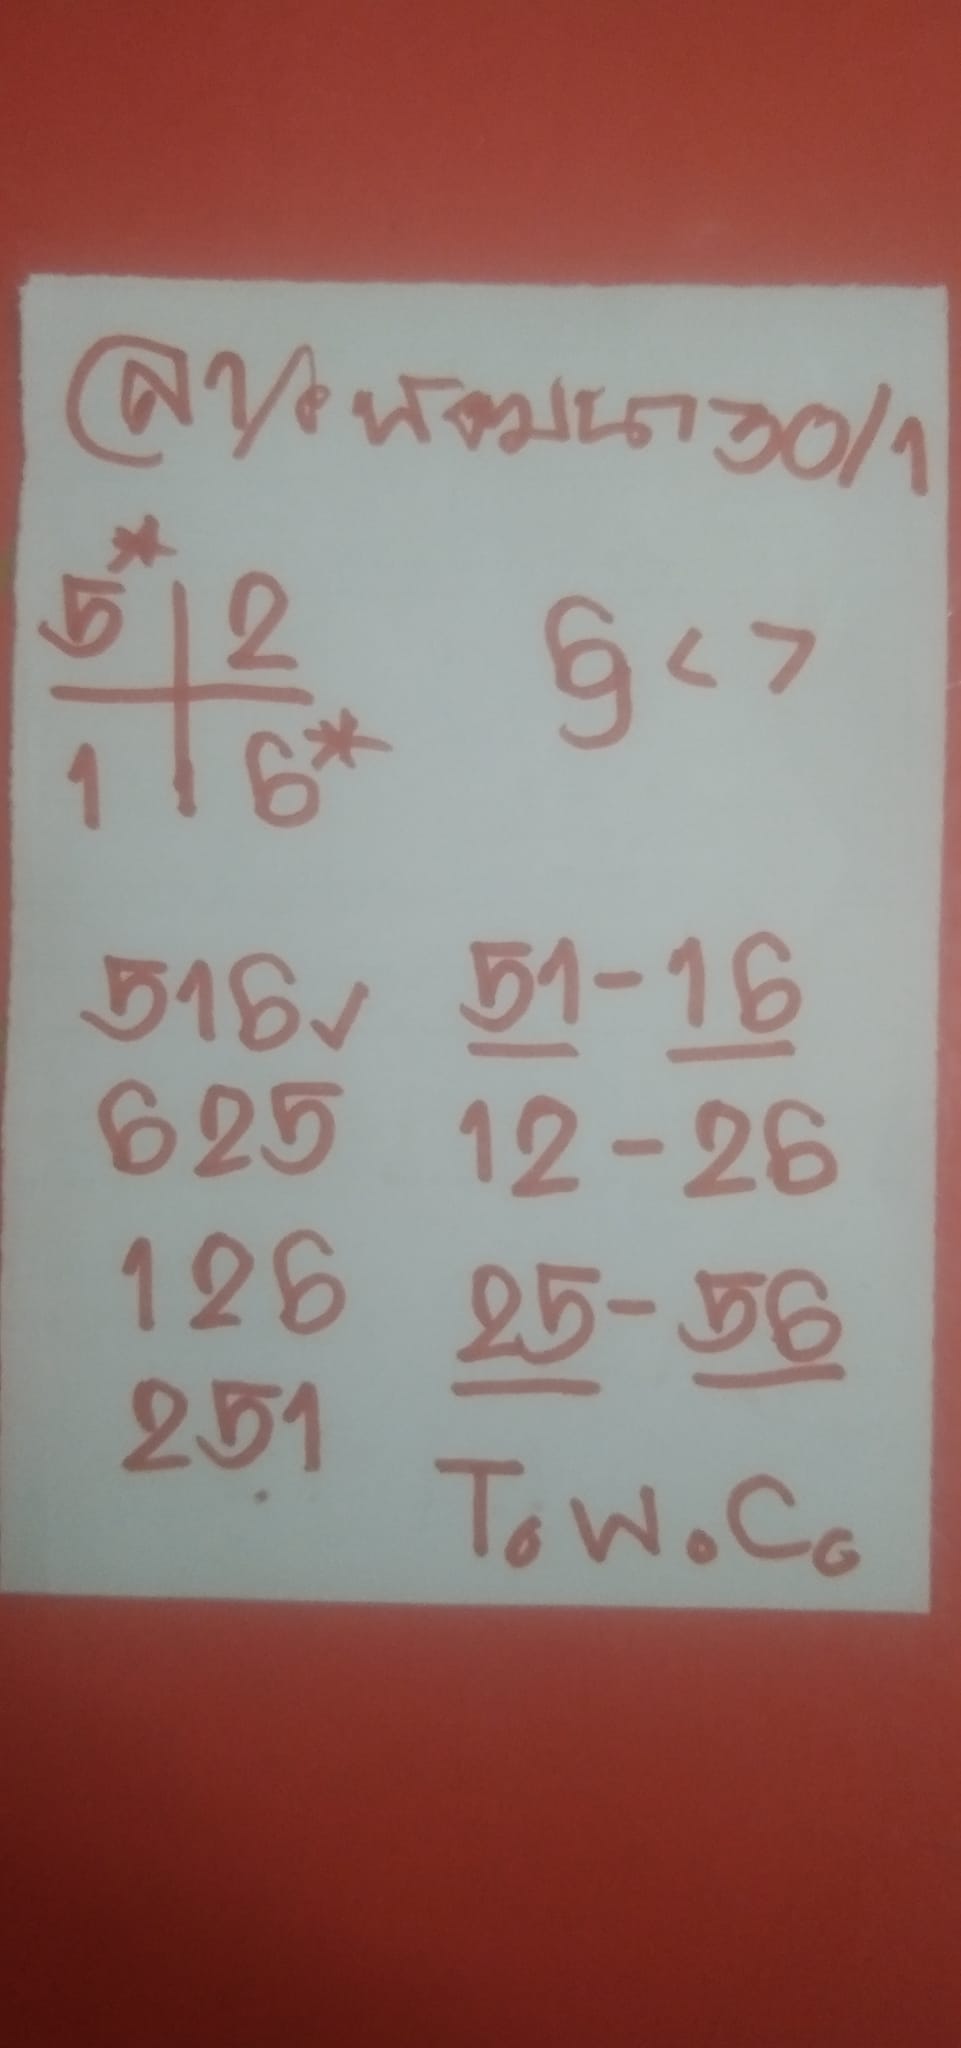 ลาวพัฒนา 30/1
5* 2
1 6*
6 < >
9
516✓ 51-16
625 12-26
126 25-56
251
T.W.C.